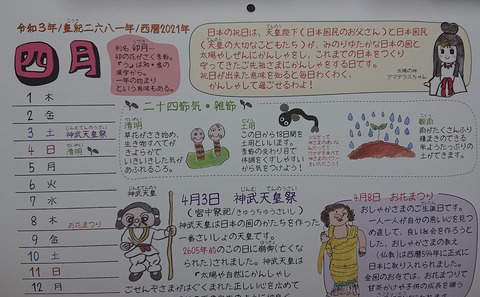 令和3年/皇紀二六八一年/西暦2021年
四月
別名 卯月…
卯の花がさく季節。
漢字から。
一年の始まり
という意味もある。
日本の祝日は、天皇陛下(日本国民のお父さん)と日本国民
(天皇の大切なこどもたち)が、みのりゆたかな日本の国と
太陽やしぜんにかんしゃをし、これまでの日本をつくり
守ってきたご先祖さまにかんしゃをする日です。
祝日が出来た意味を知ると毎日わくわく、
かんしゃして過ごせるわよ!
太陽の神
アマテラスちゃん
二十四節気・雑節
清明
草花がさき始め、
生き物すべてが
きよらかで
いきいきした気が
あふれるころ。
土用
この日から18日間を
土用といいます。
季節の変わり目で
体調をくずしやすい
から気をつけよう!
穀雨
雨がたくさんふり
種まきのできる
栄ようたっぷりの
土ができます。
1 木
2 金
3 土 神武天皇祭
4 日 清明
5 月
6 火
7 水
8 木 お花まつり
9 金
10 土
11 日
12 月
神武天皇
4月3日 神武天皇祭
(宮中祭祀/きゅうちゅうさいし)
神武天皇は日本の国のかたちを作った
一番さいしょの天皇です。
2605年前のこの日に崩御(亡くな
られた)されました。神武天皇は
"太陽や自然にかんしゃし
ごせんぞさまはぐくまれた正しい心を広めて
4月8日 お花まつり
おしゃかさまのご生誕日です。
一人一人が自分の悪い心を見つ
め直して、良い社会を作ろうと
した、おしゃかさまの教え
(仏教)は西暦594年に正式に
日本に取り入れられました。
全国のお寺では、おしゃかさまに
甘茶かけや子供の成長を願う